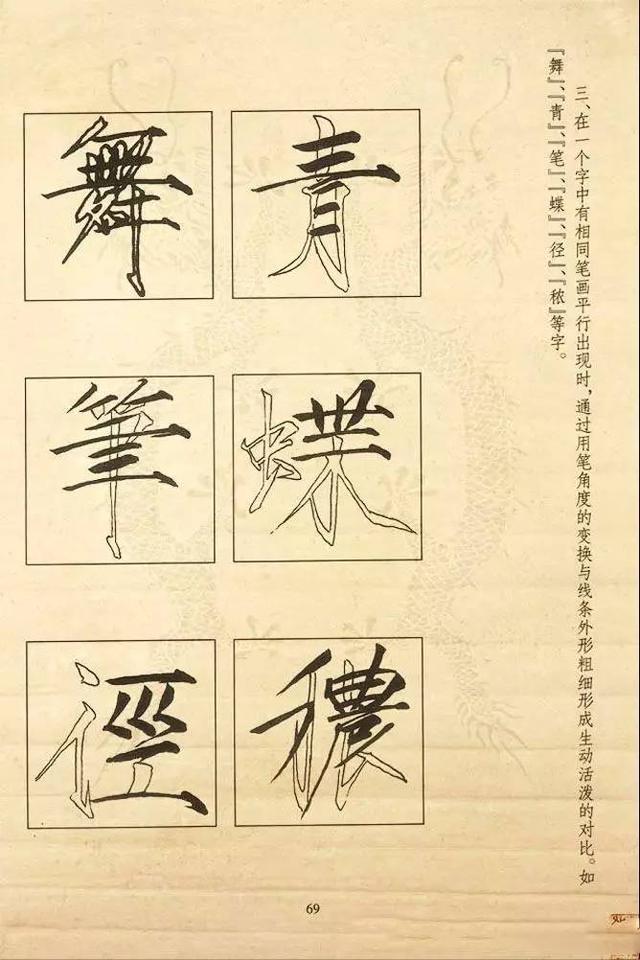 三、在一个字中有相同笔画平行出现时，通过用笔角度的变换与线条外形粗细形成生动活泼的对比。如
『舞』、『青』、『笔』、『蝶』、『径』、『秾』等字。
青
舞
蝶
筆
穠
徑
69